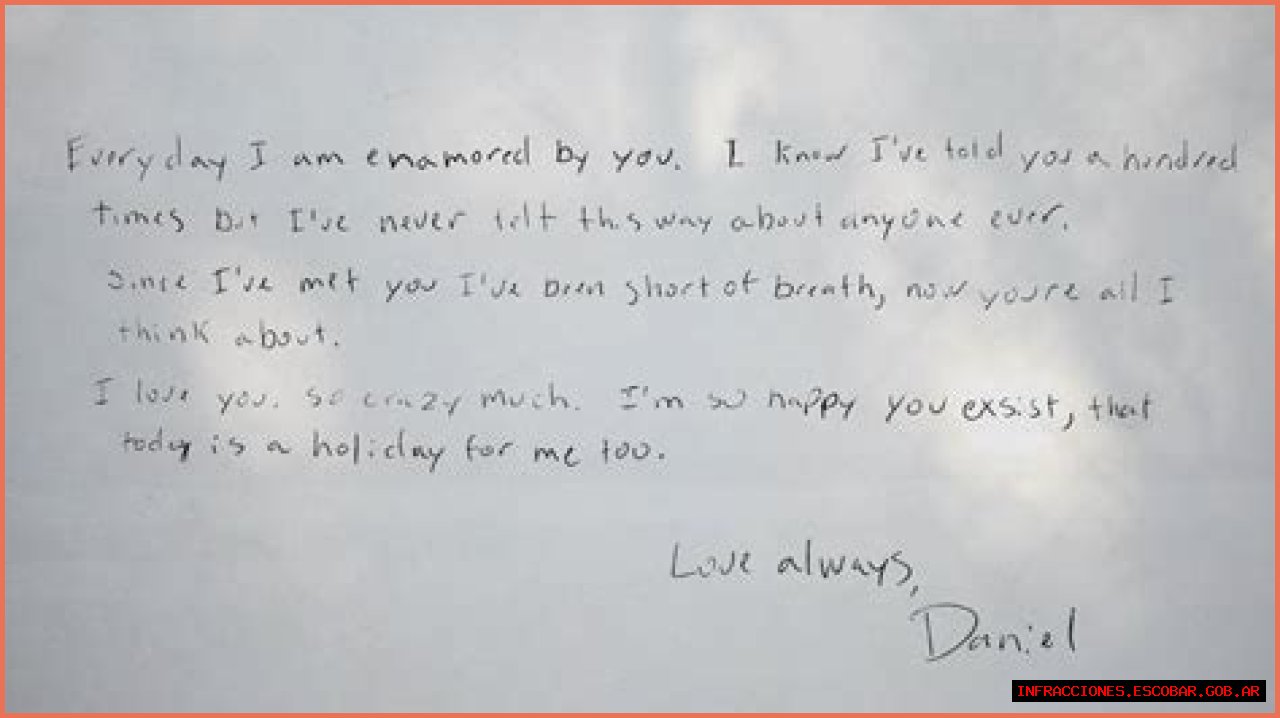 Everyday I am enamored by you. I know I've told you a hundred
times but I've never felt this way about anyone ever.
Since I've met you I've been short of breath, now you're all I
think about.
I love you. so crazy much. I'm so happy you exsist, that
today is a holiday for me too.
Love always,
Daniel
INFRACCIONES.ESCOBAR.GOB.AR